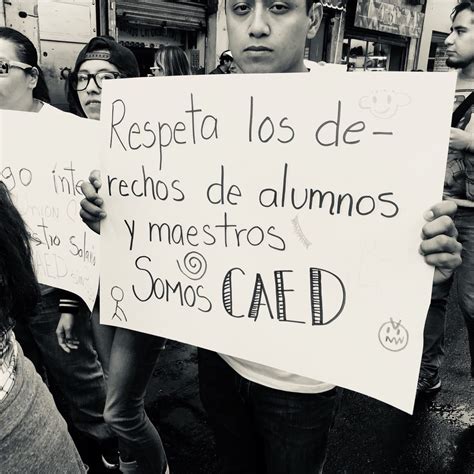 Respeta los de-
rechos de alumnos
y maestros
Somos CAED
go inte
stro Salario
AED